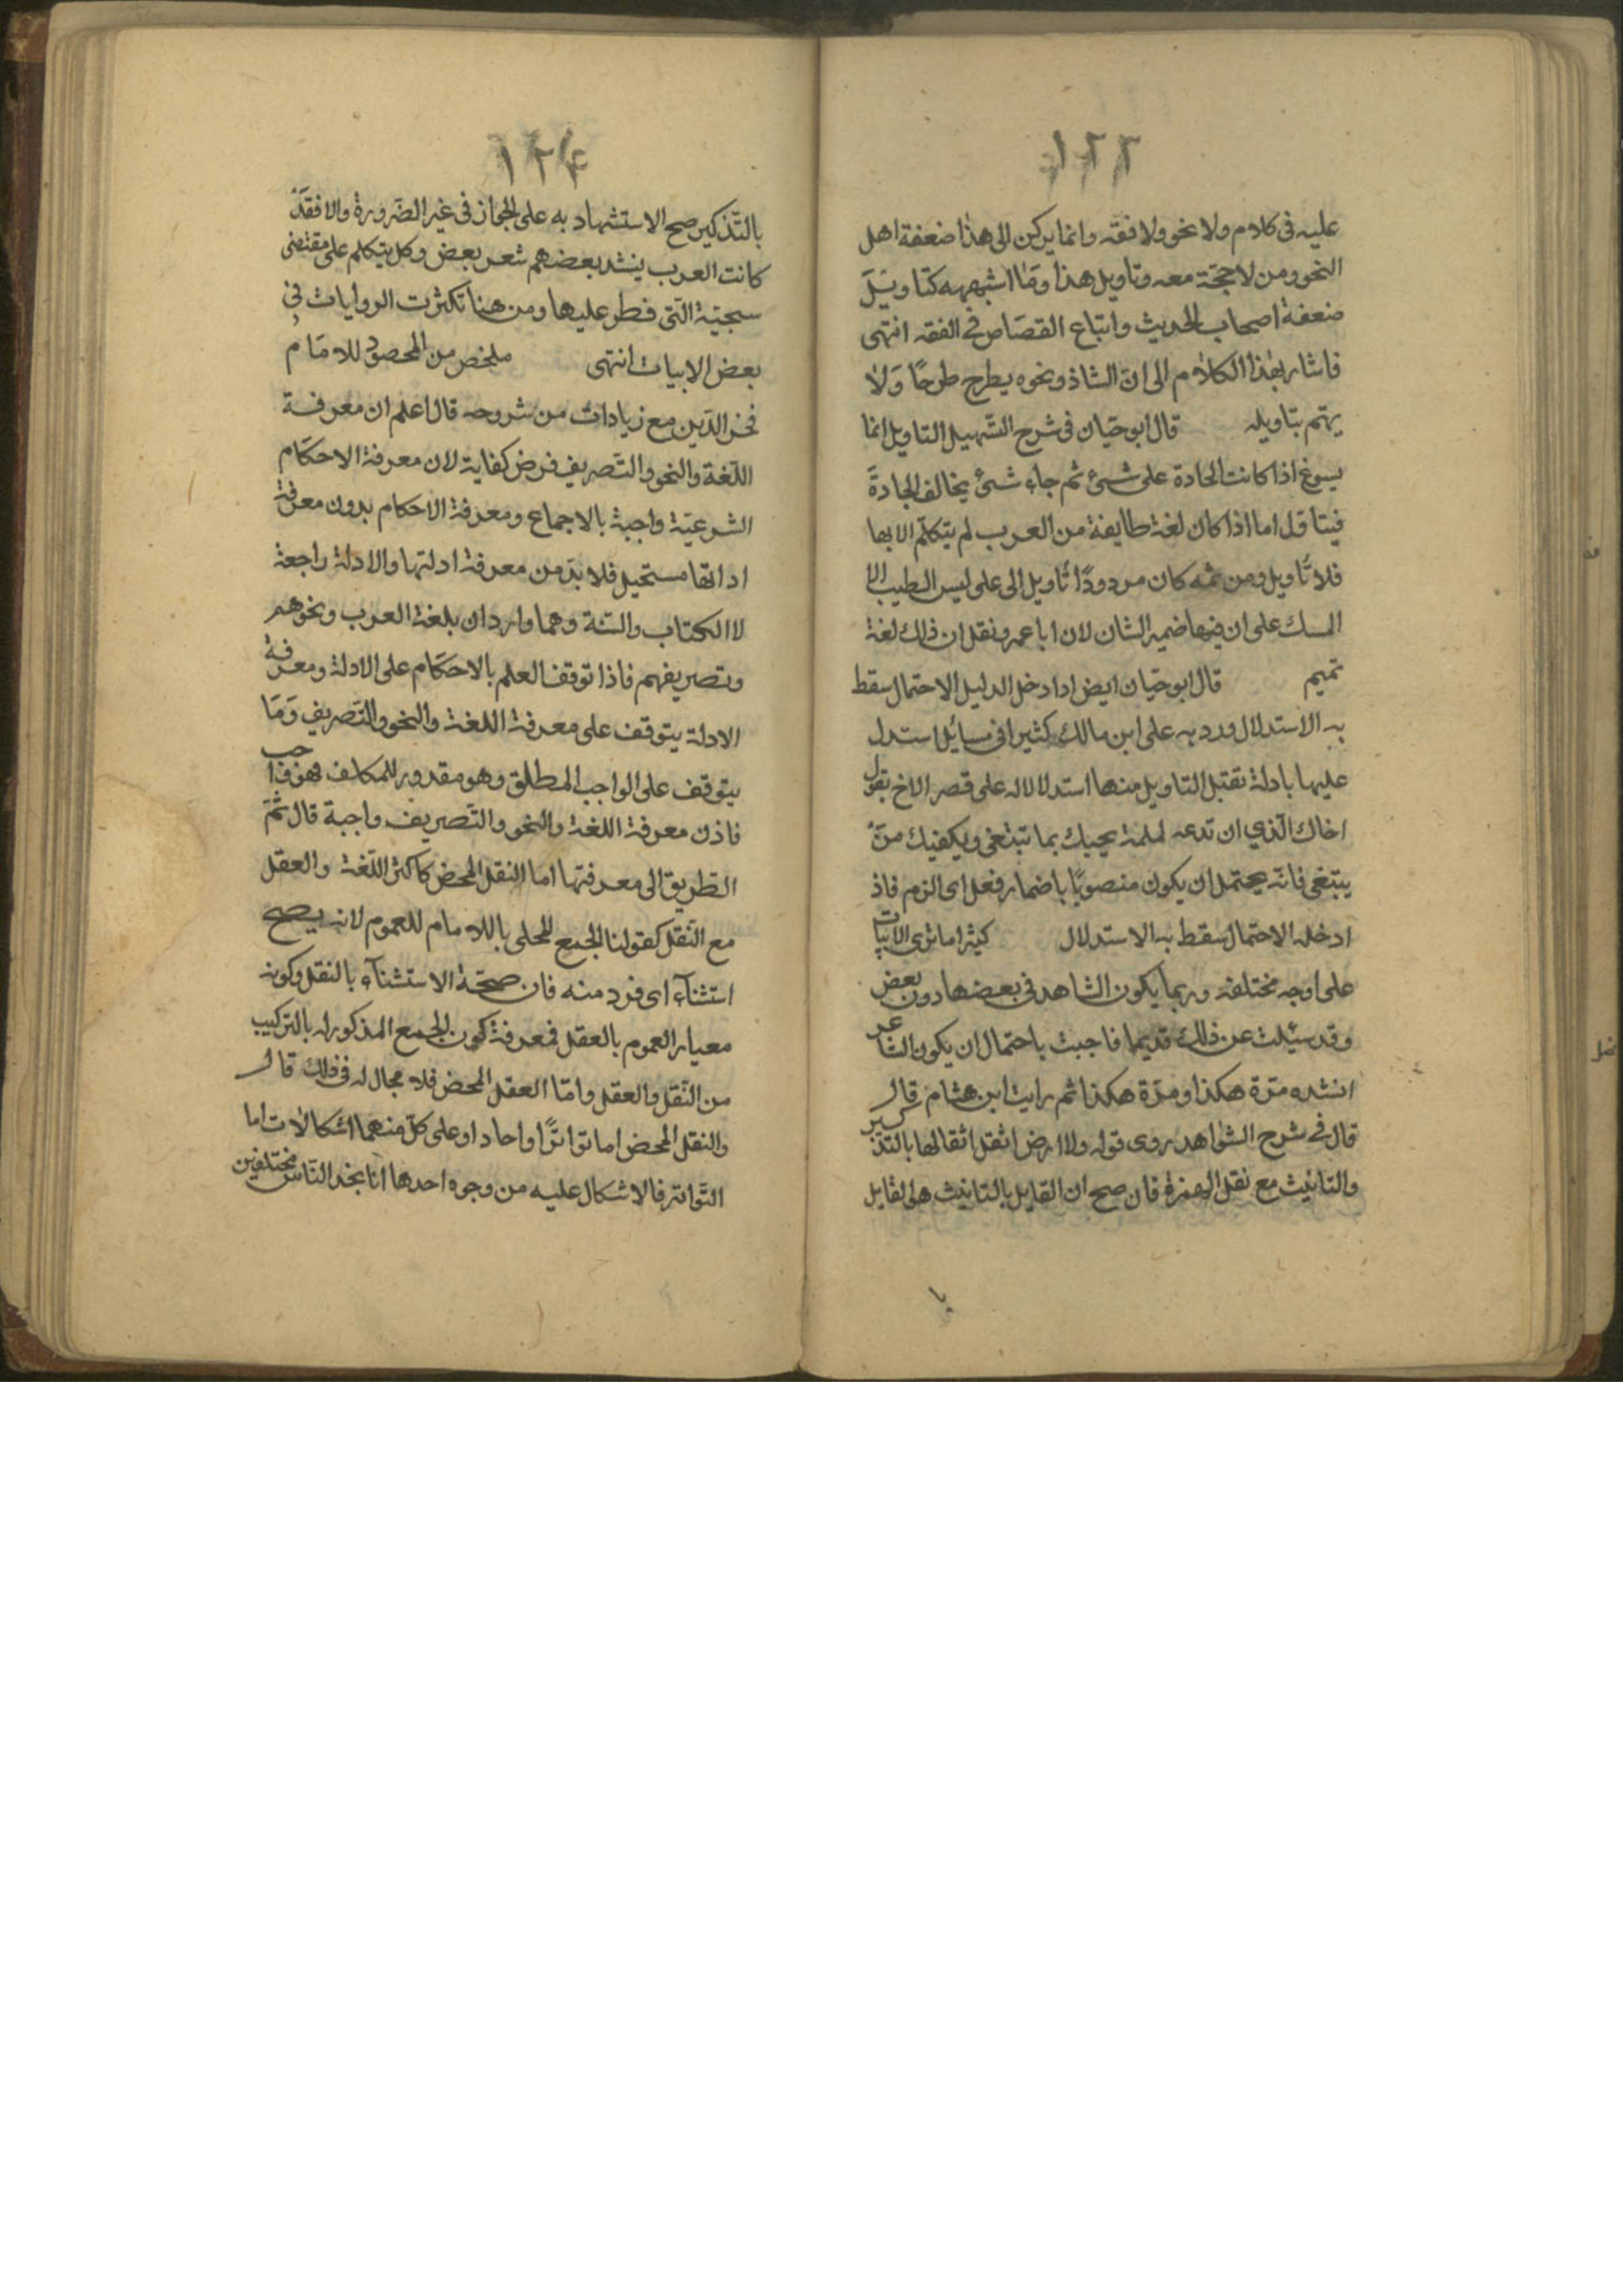 ١٢٣
عليه فى كلام ولا نحو ولا فقه وانما يركن الى هذا ضعفة اهل
النحو ومن لا حجّة معه وتاويل هذا وما اشبهه كتاويل
ضعفة اصحاب الحديث واتباع القصّاص فى الفقه انتهى
فاشار بهذا الكلام الى ان الشاذ ونحوه يطرح طرحًا ولا
يهتم بتاويله قال ابو حيّان فى شرح التّسهيل التاويل انما
يسوغ اذا كانت الجادة على شئ ثم جاء شئ يخالف الجادة
فيتاول اما اذا كان لغة طايفة من العرب لم يتكلم الا بها
فلا تاويل ومن ثمه كان مردودًا تاويل الى على ليس الطيب الا
المسك على ان فيها ضمير الشان لان ابا عمر ونقل ان ذلك لغة
تميم قال ابو حيّان ايض اذا دخل الدليل الاحتمال سقط
به الاستدلال ورد به على ابن مالك كثيرا فى مسائل استدل
عليها بادلة تقتبل التاويل منها استدلالاله على قصر الاخ بقول
اخاك الّذي ان تدعه لملمة يجيبك بما تبتغى ويكفيك منْ
يبتغى فانه يحتمل ان يكون منصوبًا باضمار فعل اى الزم فاذ
ادخله الاحتمال سقط به الاستدلال كثيرا ما تروى الابيات
على اوجه مختلفة وربما يكون الشاهد فى بعضها دون بعض
وقد سئلت عن ذلك قديما فاجبت باحتمال ان يكون الشاعر
انشده مرّة هكذا ومرّة هكذا ثم رايت ابن هشام قال
قال فى شرح الشواهد روى قوله ولا ارض ابقل ابقالها بالتذكير
والتانيث مع نقل الهمزة فان صح ان القايل بالتانيث هو القايل
١٢٤
بالتّذكير صح الاستشهاد به على الجواز فى غير الضّرورة والا فقد
كانت العرب ينشد بعضهم شعر بعض وكل يتكلم على مقتضى
سجيّة الّتى فطر عليها ومن هنا تكثرت الروايات فى
بعض الابيات انتهى ملخص من المحصول للامام
فخر الدّين مع زيادات من شروحه قال اعلم ان معرفة
اللّغة والنحو والتّصريف فرض كفاية لان معرفة الاحكام
الشرعيّة واجبة بالاجماع ومعرفة الاحكام بدون معرفة
ادلتها مستحيل فلا بدّ من معرفة ادلتها والادلة راجعة
لا الكتاب والسنة وهما واردان بلغة العرب ونحوهم
وتصريفهم فاذا توقف العلم بالاحكام على الادلة ومعرفة
الادلة يتوقف على معرفة اللغة والنحو والتّصريف وما
يتوقف على الواجب المطلق وهو مقدور للمكلف فهو واجب
فاذن معرفة اللغة والنحو والتّصريف واجبة قال ثمّ
الطّريق الى معرفتها اما النقل المحض كاكثر اللّغة والعقل
مع النّقل كقولنا الجمع المحلى باللام للعموم لانه يصح
استثناء اى فرد منه فان صحّة الاستثناء بالنقل وكونه
معيار العموم بالعقل فمعرفة كون الجمع المذكور له بالتركيب
من النّقل والعقل وامّا العقل المحض فلا مجال له فى ذلك قال
والنقل المحض اما تواترًا او احاد او على كلّ منهما اشكالات اما
التّواتر فالاشكال عليه من وجوه احدها انا نجد النّاس مختلفين